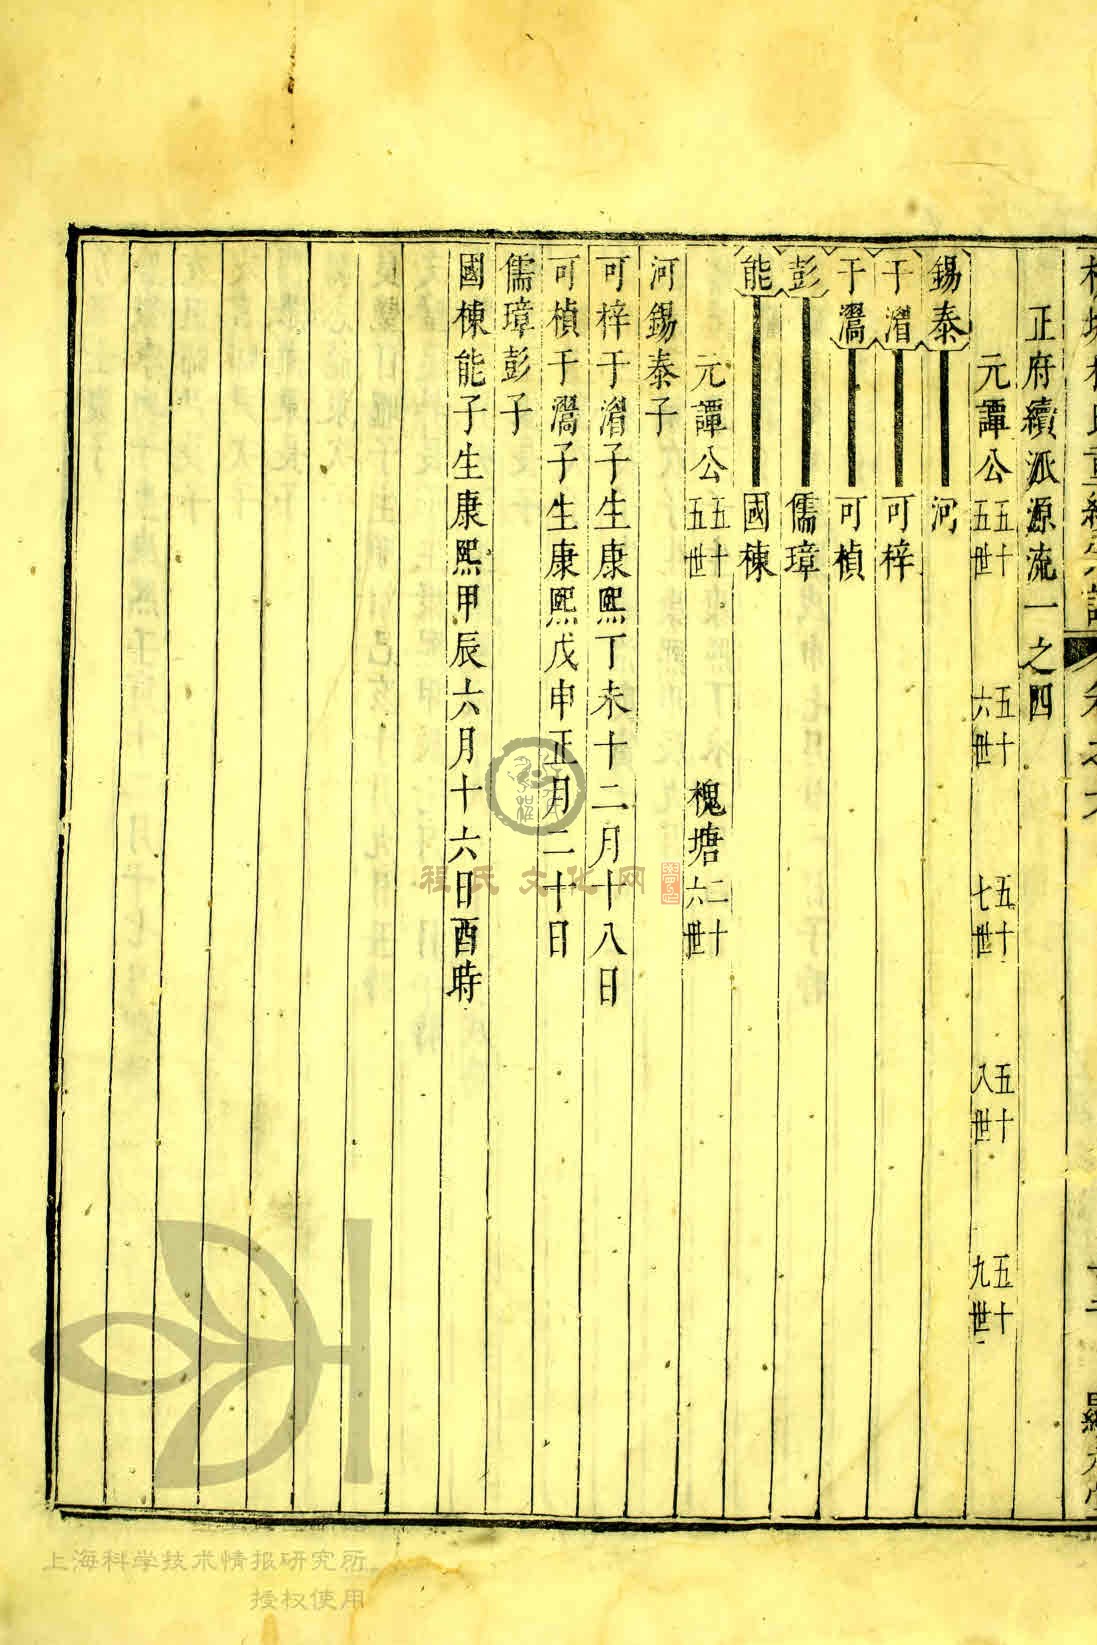 正府續派源流一之四
元譚公 五十五世 五十六世 五十七世 五十八世 五十九世
錫泰 河
于潪 可梓
于濿 可楨
彭 儒璋
能 國棟
元譚公 五十五世 槐塘 二十六世
河錫泰子
可梓于潪子生康熙丁未十二月十八日
可楨于濿子生康熙戊申正月二十日
儒璋彭子
國棟能子生康熙甲辰六月十六日酉時
程氏文化网
上海科学技术情报研究所
授权使用